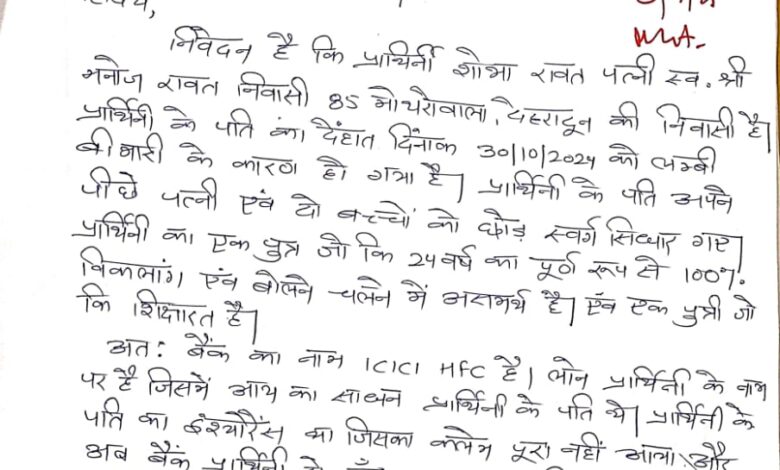 महोदय,
निवेदन है कि प्रार्थिनी शोभा रावत पत्नी स्व. श्री
मनोज रावत निवासी 85 मोथरोवाला, देहरादून की निवासी है।
प्रार्थिनी के पति का देहांत दिनांक 30/10/2024 को लम्बी
बीमारी के कारण हो गया है। प्रार्थिनी के पति अपने
पीछे पत्नी एवं दो बच्चों को छोड़ स्वर्ग सिधार गए।
प्रार्थिनी का एक पुत्र जो कि 24 वर्ष का पूर्ण रूप से 100%
विकलांग एंव बोलने चलने में असमर्थ है। एंव एक पुत्री जो
कि शिक्षारत है।
अत: बैंक का नाम ICICI HFC है। लोन प्रार्थिनी के नाम
पर है जिसमें आय का साधन प्रार्थिनी के पति थे। प्रार्थिनी के
पति का इंश्योरेंस था जिसका क्लेम पूरा नहीं आया और
अब बैंक प्रार्थिनी